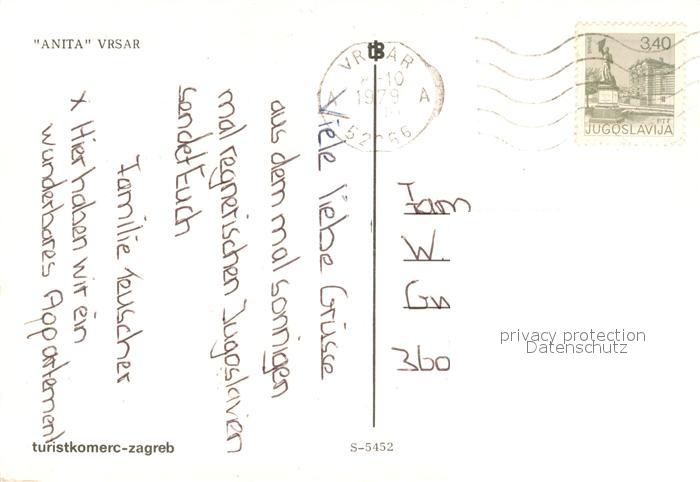 "ANITA" VRSAR
VRSAR
1979
A A
52366
3,40
PTT
JUGOSLAVIJA
Viele liebe Grüsse
aus dem mal sonnigen
mal regnerischen Jugoslavien
sendet Euch
Familie Teuscher
x Hier haben wir ein
wunderbares Appartement
Fam
W.
Gu
360
privacy protection
Datenschutz
turistkomerc-zagreb
S-5452